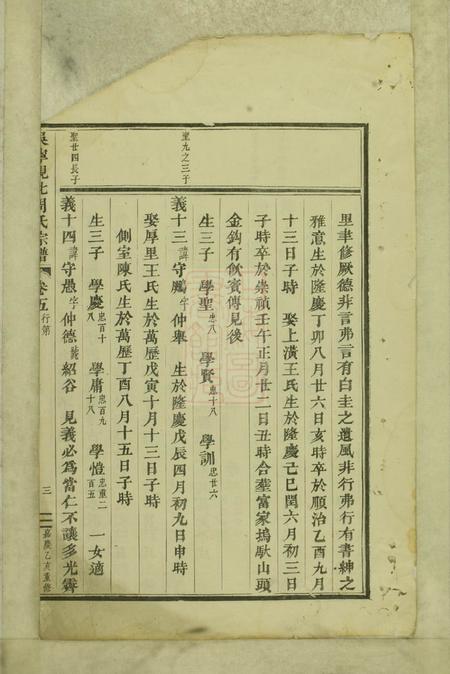 里聿修厥德非言弗言有白圭之遺風非行弗行有書紳之
雅意生於隆慶丁卯八月廿六日亥時卒於順治乙酉九月
十三日子時 娶上潢王氏生於隆慶己巳閏六月初三日
子時卒於崇禎壬午正月廿二日丑時合塟富家塢馱山頭
金鈎有傳見後
聖九之三子
生三子 學聖忠八 學賢忠十八 學訓忠廿六
義十三諱守鵬字仲舉 生於隆慶戊辰四月初九日申時
娶厚里王氏生於萬歷戊寅十月十三日子時
側室陳氏生於萬歷丁酉八月十五日子時
生三子 學慶忠百十 學庸忠百九十八 學愷忠重二百五 一女適
聖廿四長子
義十四諱守愚字仲德號紹谷 見義必為當仁不讓多光霽
吳寧峴北周氏宗譜 卷五行第 三 嘉慶乙亥重修